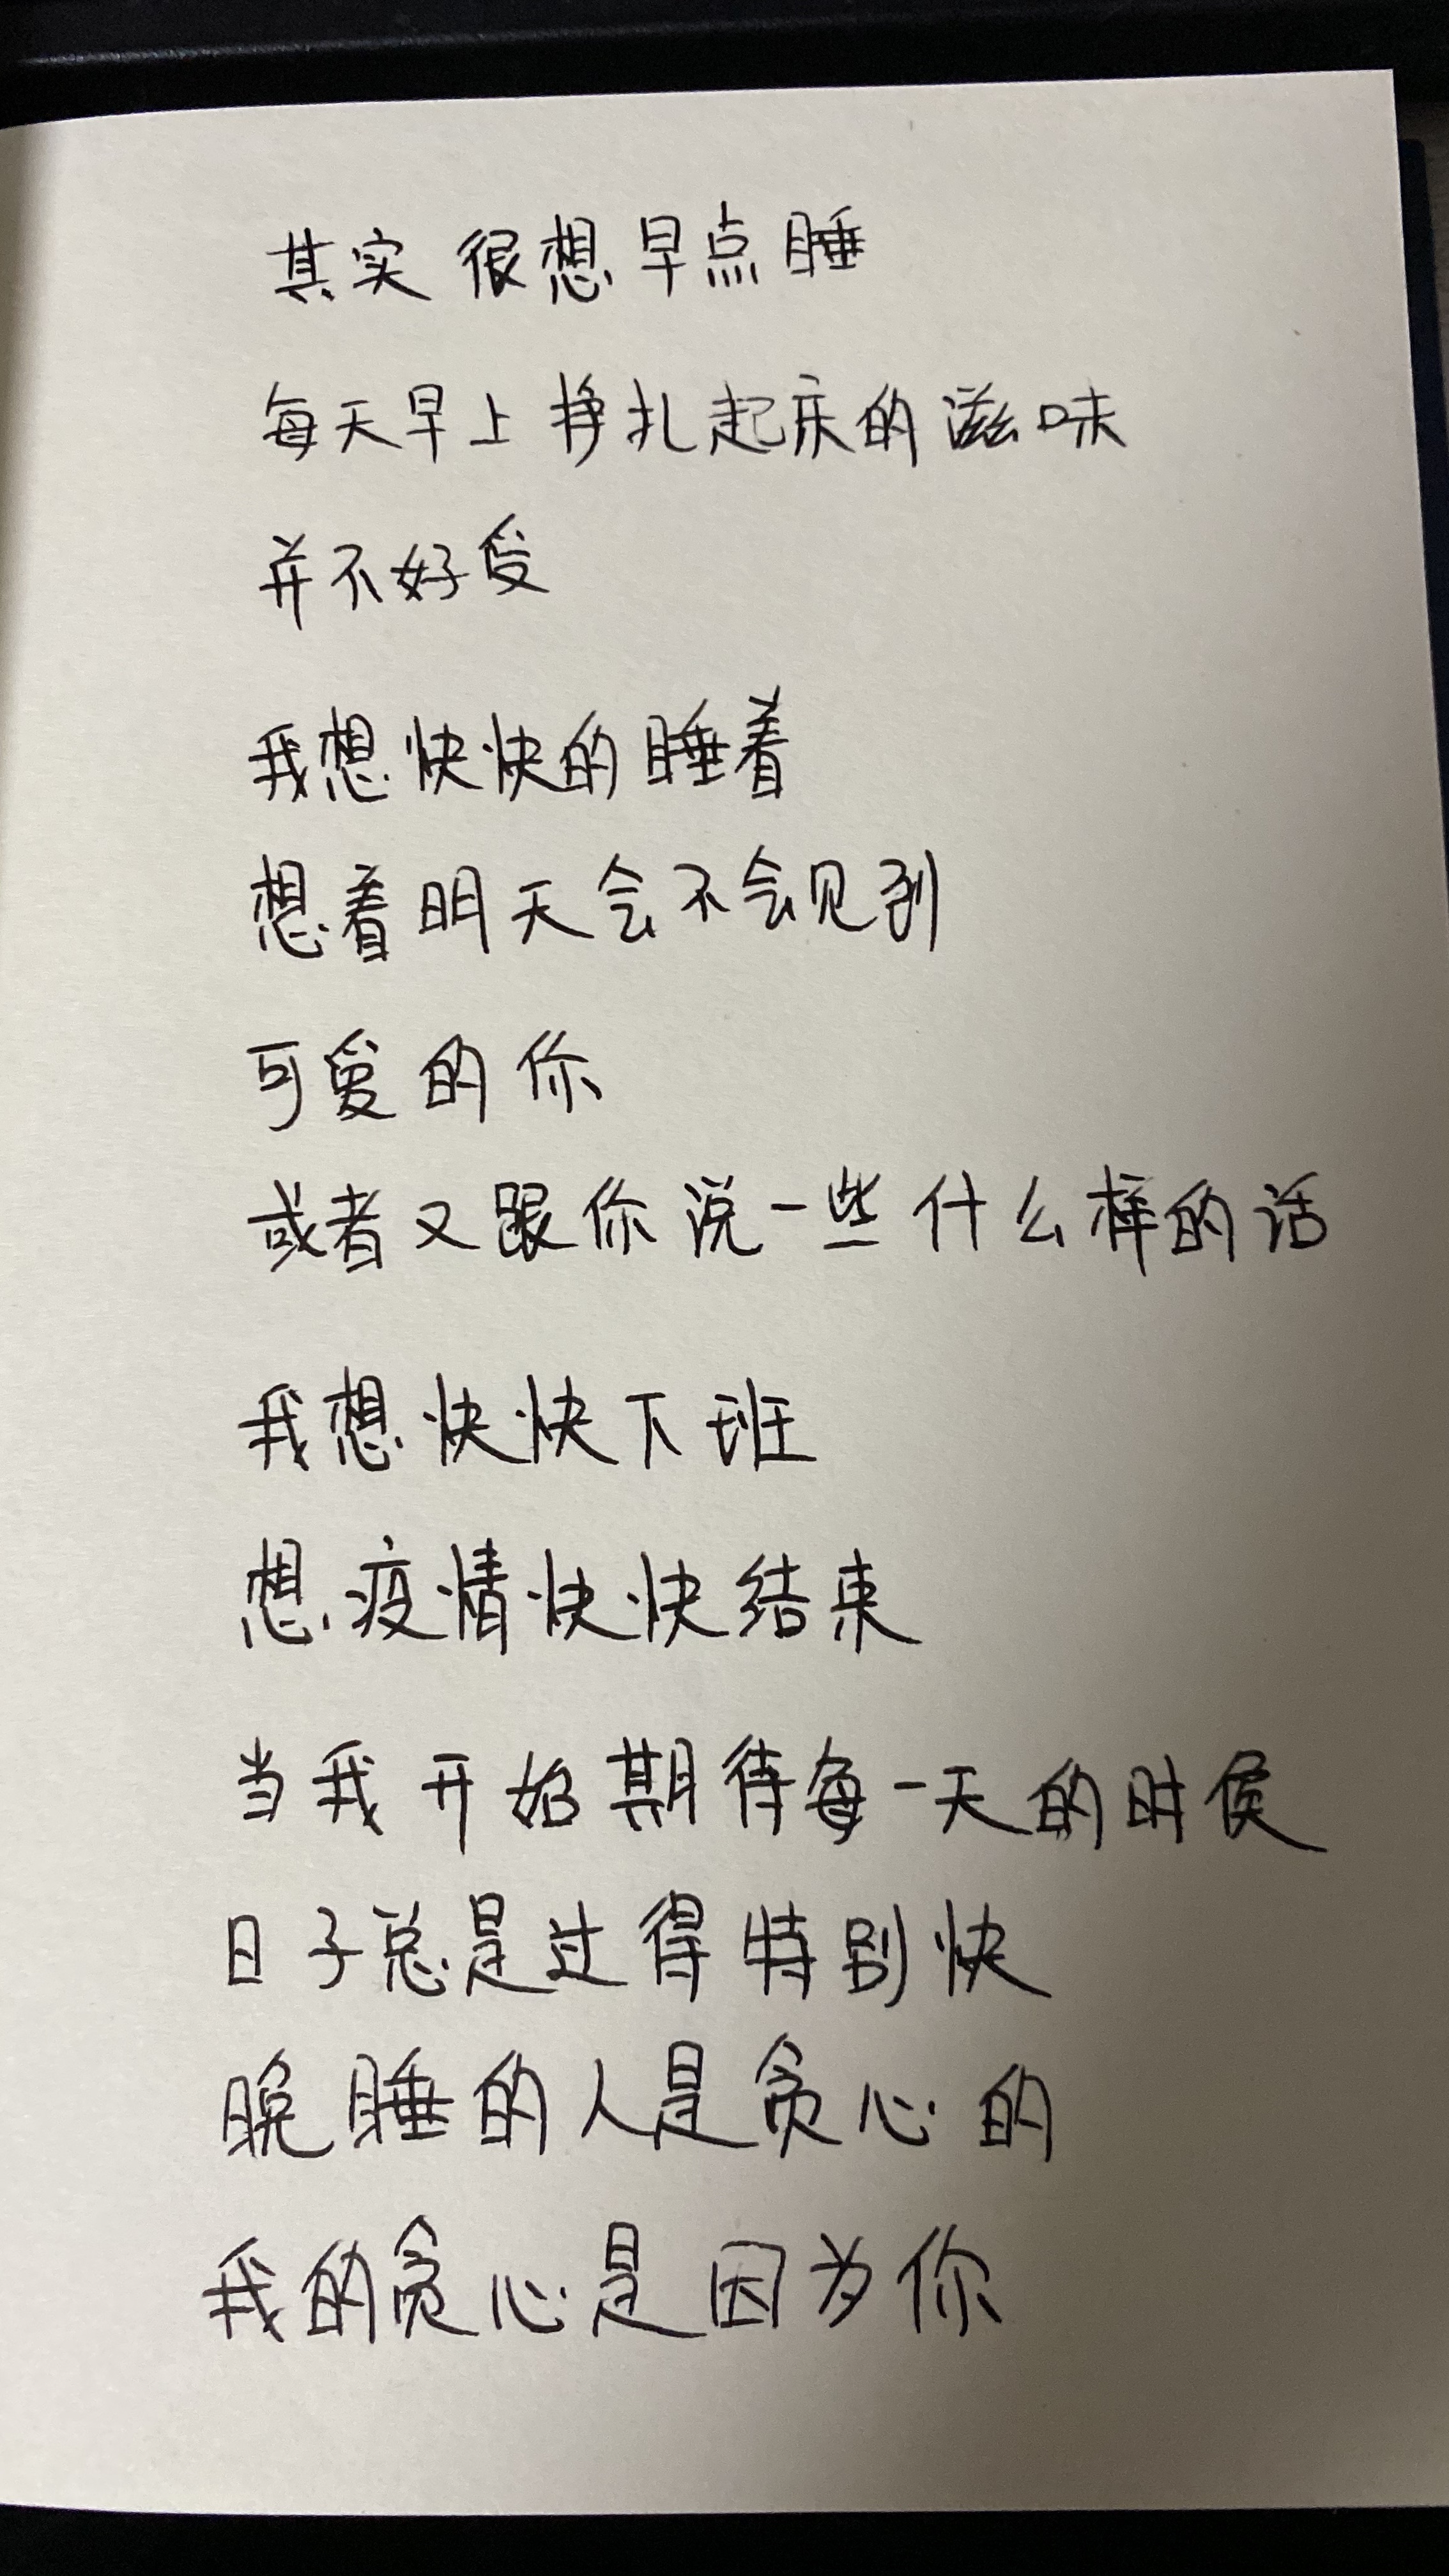 其实很想早点睡
每天早上挣扎起床的滋味
并不好受
我想快快的睡着
想着明天会不会见到
可爱的你
或者又跟你说一些什么样的话
我想快快下班
想疫情快快结束
当我开始期待每一天的时候
日子总是过得特别快
晚睡的人是贪心的
我的贪心是因为你